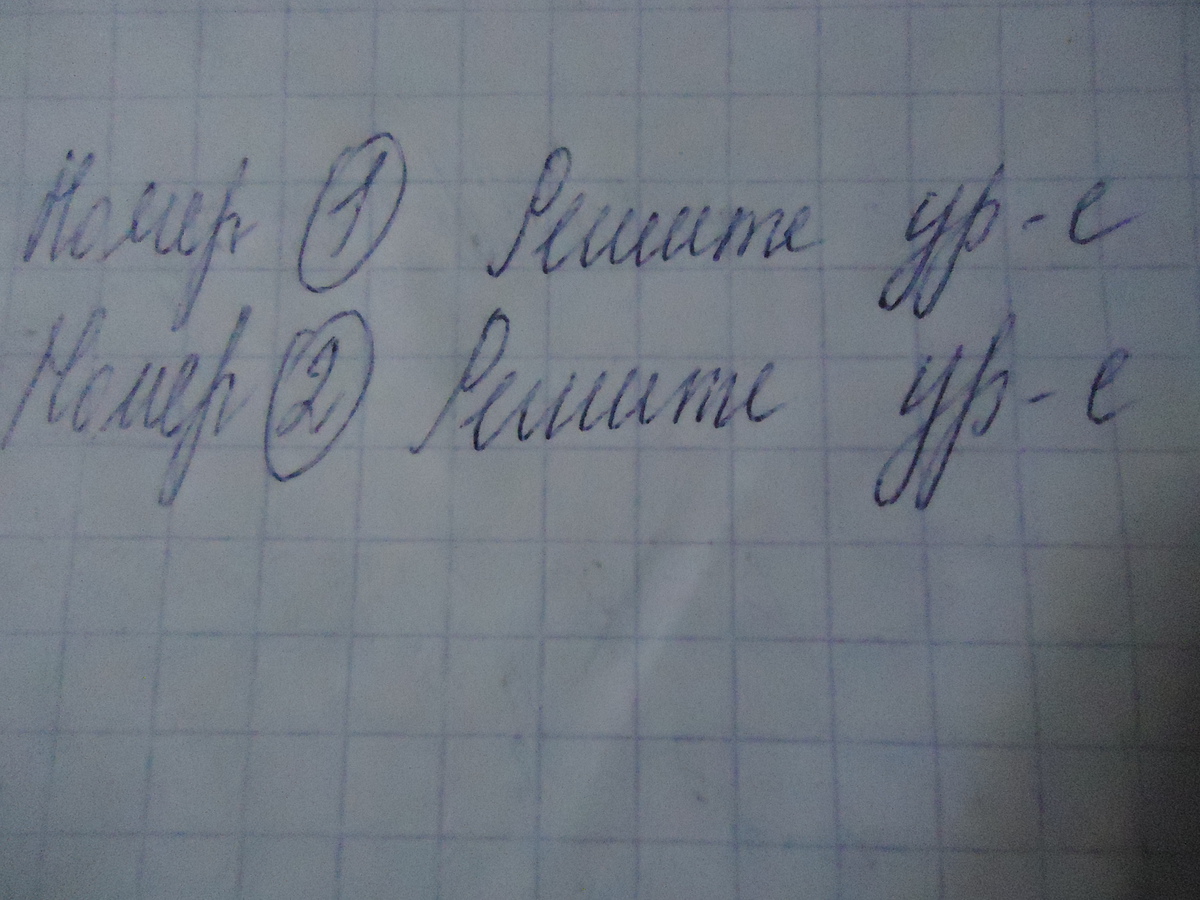 Номер 1 Решите ур-е
Номер 2 Решите ур-е